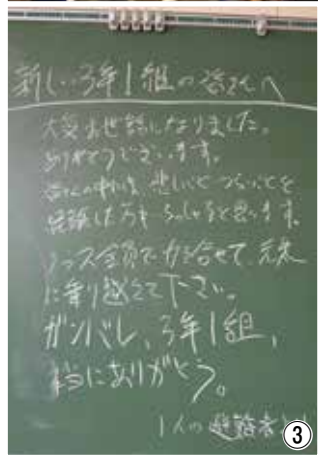 新しい3年1組の皆さんへ
大変お世話になりました。
ありがとうございます。
皆さんの中にも悲しいことつらいことを
経験した方もいらっしゃると思います。
クラス全員で力を合せて、元気
に乗り越えて下さい。
ガンバレ、3年1組、
本当にありがとう。
1人の避難者より
③